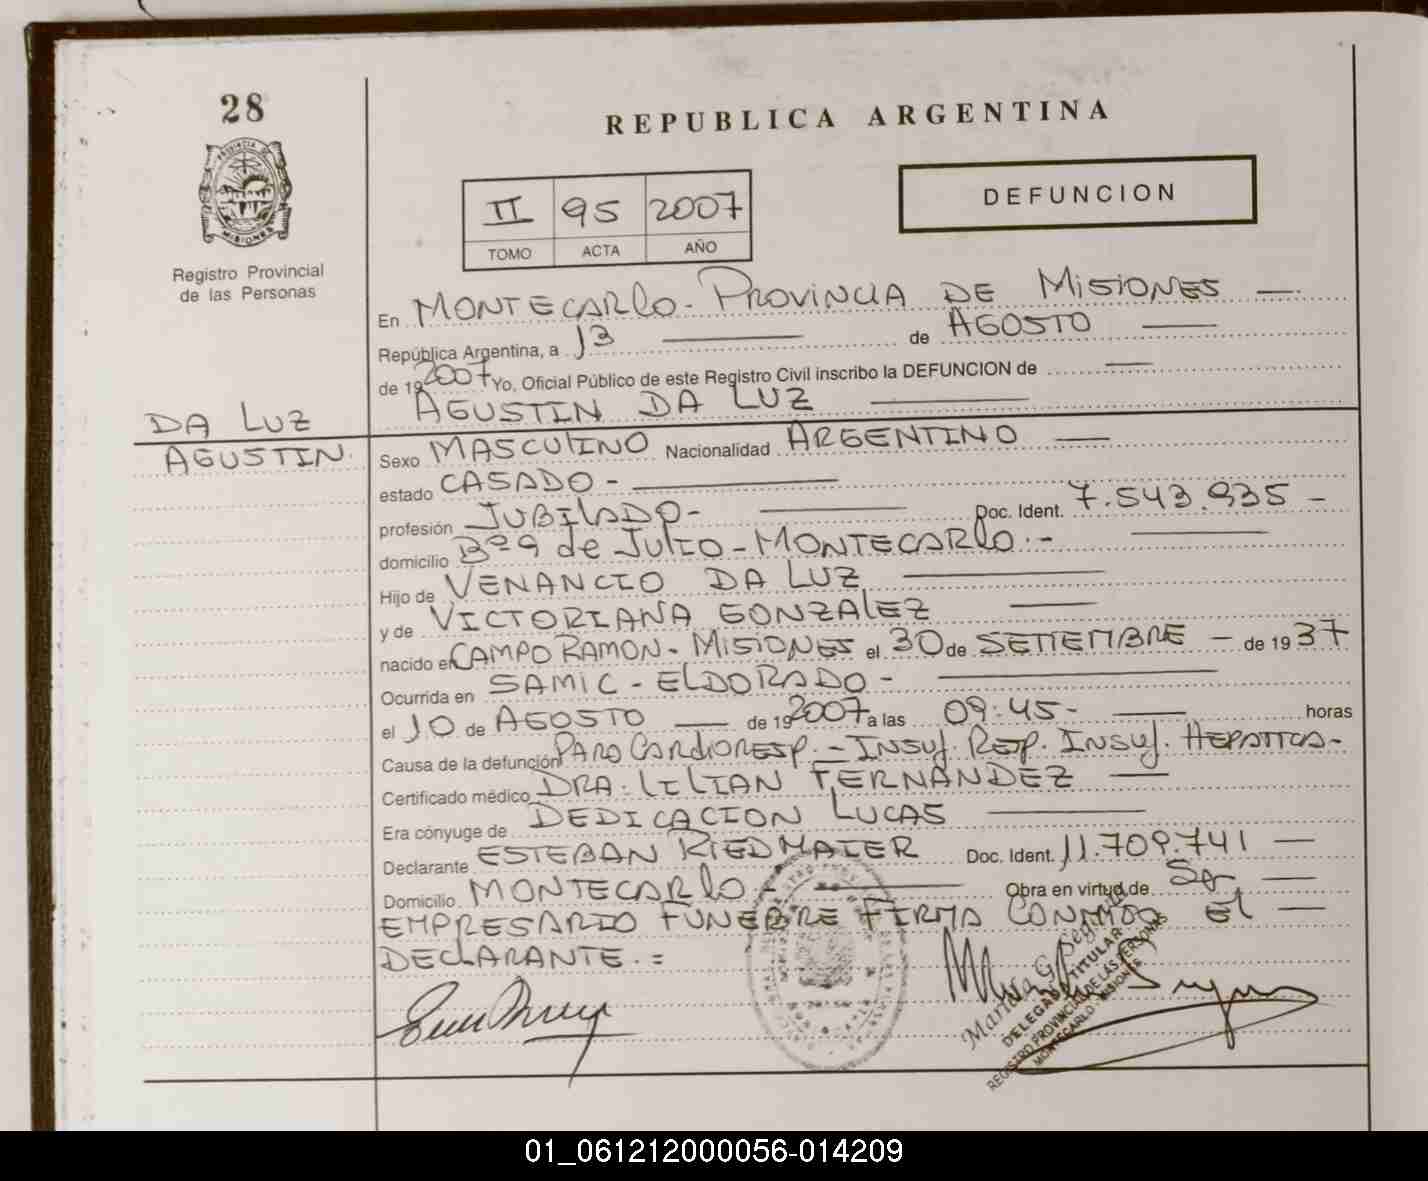 28
REPUBLICA ARGENTINA
PROVINCIA DE
MISIONES
Registro Provincial
de las Personas
II 95 2007
TOMO ACTA AÑO
DEFUNCION
En MONTECARLO - PROVINCIA DE MISIONES
República Argentina, a 13 de AGOSTO
de 19 2007 Yo, Oficial Público de este Registro Civil inscribo la DEFUNCION de
AGUSTIN DA LUZ
DA LUZ
AGUSTIN.
Sexo MASCULINO Nacionalidad ARGENTINO
estado CASADO -
profesión JUBILADO - Doc. Ident. 7.543.935 -
domicilio Bº 9 de JULIO - MONTECARLO.-
Hijo de VENANCIO DA LUZ
y de VICTORIANA GONZALEZ
nacido en CAMPO RAMON - MISIONES el 30 de SETIEMBRE - de 1937
Ocurrida en SAMIC - ELDORADO -
el 10 de AGOSTO de 19 2007 a las 09:45- horas
Causa de la defunción PARO CARDIORESP. - INSUF. RESP. INSUF. HEPATICA -
Certificado médico DRA. LILIAN FERNANDEZ
Era cónyuge de DEDICACION LUCAS
Declarante ESTEBAN RIEDMAIER Doc. Ident. 11.709.741
Domicilio MONTECARLO.- Obra en virtud de Ser
EMPRESARIO FUNEBRE FIRMA CONMIGO El
DECLARANTE.=
DELEGADA TITULAR
REGISTRO PROVINCIAL DE LAS PERSONAS
MONTECARLO - MISIONES
01_061212000056-014209